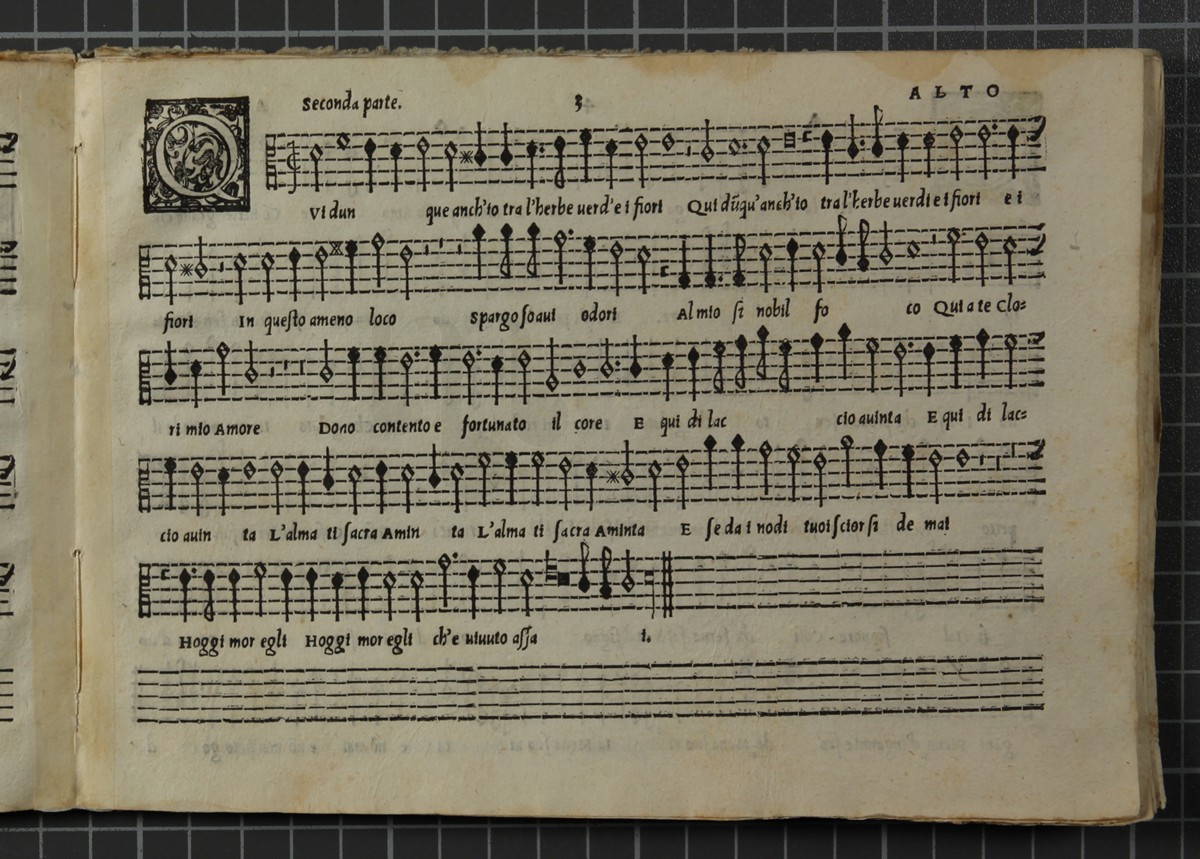 Seconda parte. 3 ALTO
QVi dun que anch'io tra l'herbe uerd'e i fiori Qui dũqu'anch'io tra l'herbe uerdi e i fiori e i
fiori In questo ameno loco Spargo soaui odori Al mio si nobil fo co Qui a te Clo=
ri mio Amore Dono contento e fortunato il core E qui di lac cio auinta E qui di lac=
cio auin ta L'alma ti sacra Amin ta L'alma ti sacra Aminta E se da i nodi tuoi scior si de mai
Hoggi mor egli Hoggi mor egli ch'e uiuuto assa i.